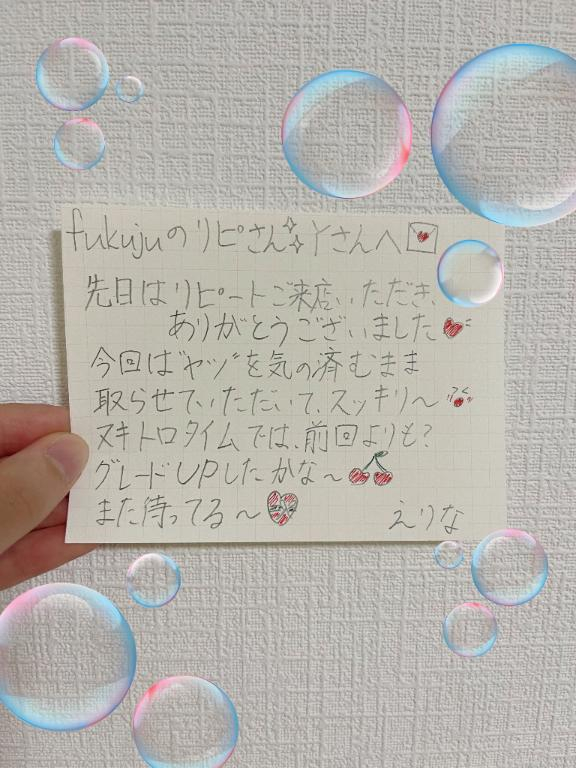 fukujuのリピさん Yさんへ
先日はリピートご来店いただき、
ありがとうございました
今回は"ヤツ"を気の済むまま
取らせていただいて、スッキリ〜
ヌキトロタイムでは、前回よりも?
グレードUPしたかな〜
また待ってる〜
えりな